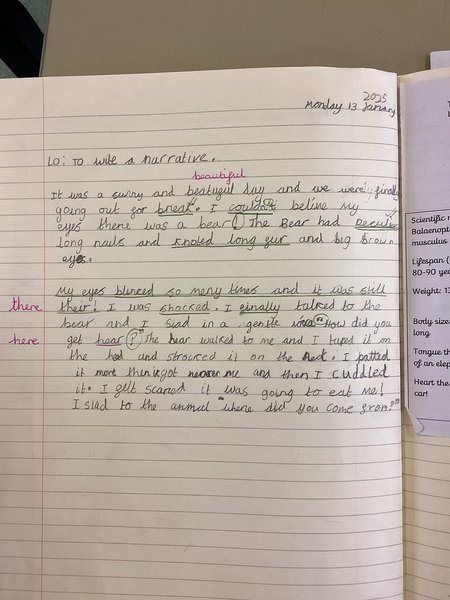 2025
Monday 13 January
LO: To write a narrative.
beautiful
It was a sunny and beatyful day and we were finally
going out for break. I couldn't belive my
eyes there was a bear! The Bear had
long nails and knoted long fur and big brown
eye.
My eyes blinced so meny times and it was still
there
their! I was shocked. I finally talked to the
bear and I siad in a gentle "How did you
here
get hear?" The bear walked to me and I taped it on
the hed and stroked it on the hed. I patted
it more then it got me and then I cuddled
it. I felt scared it was going to eat me!
I siad to the animal "where did you come from?"
Scientific
Balaenopt
musculus
Lifespan (
80-90 yea
Weight: 13
Body size
long
Tongue th
of an elep
Heart the
car!